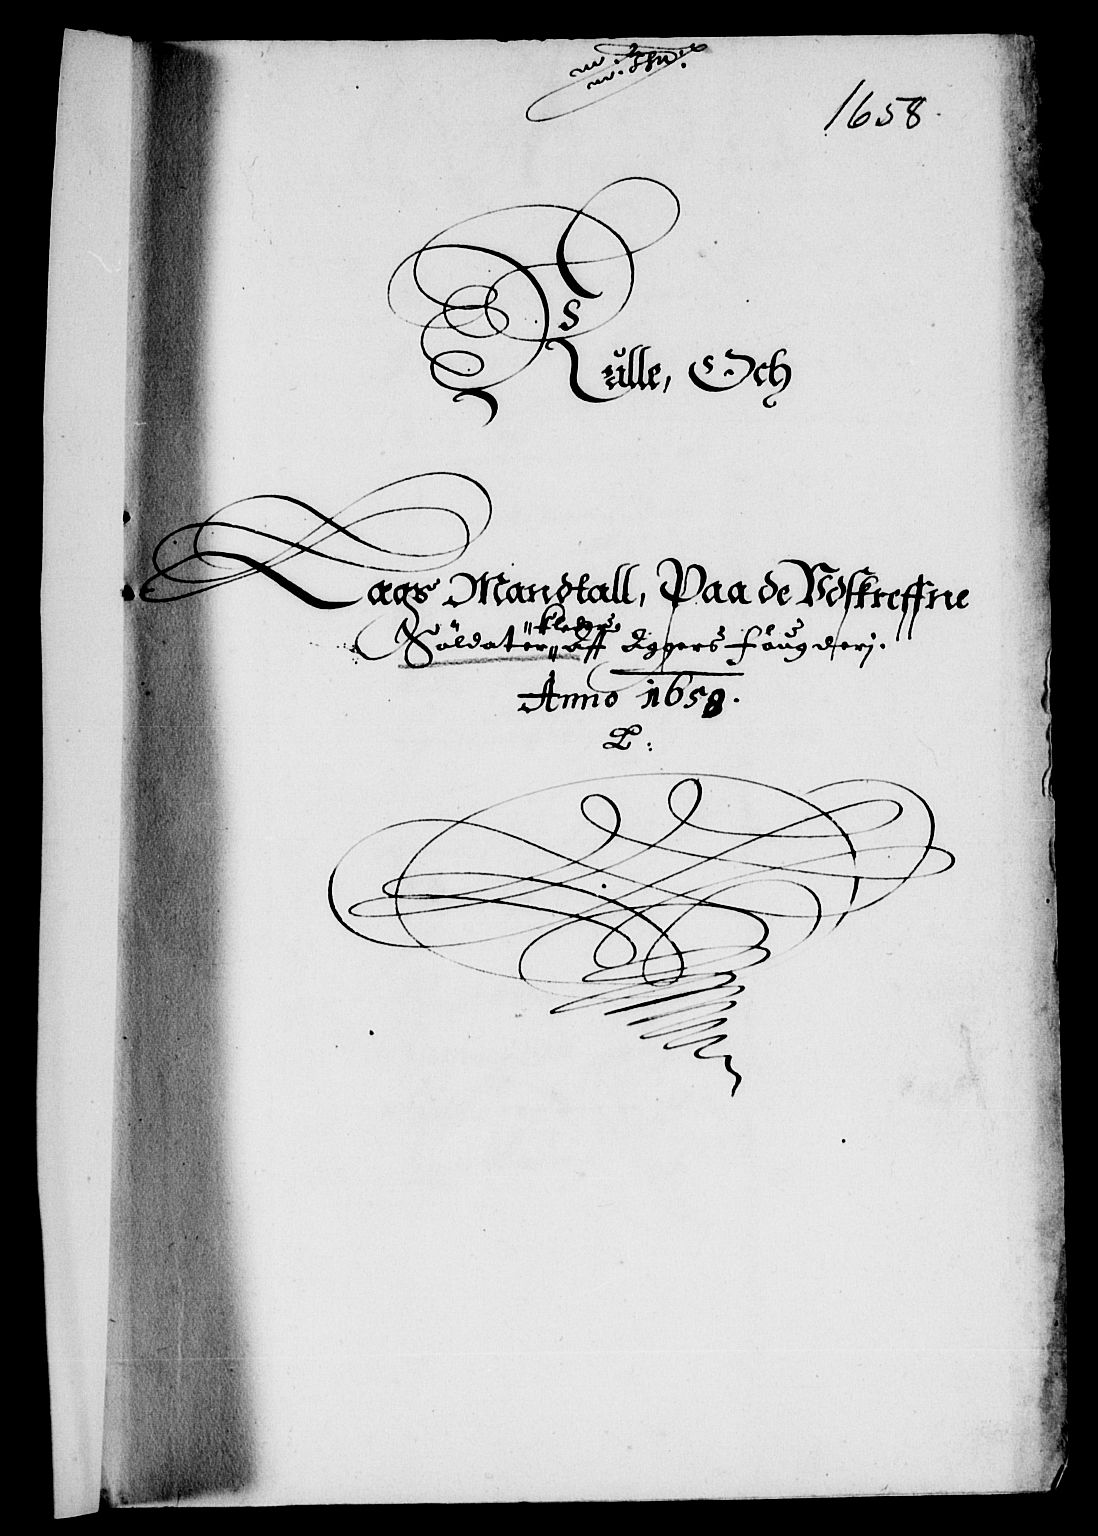 1658.
Rulle, Och
Laags Mandtall, Paa de Vdskreffne
kleder
Söldater Aff Eggers fougderj.
Anno 1658.
L: